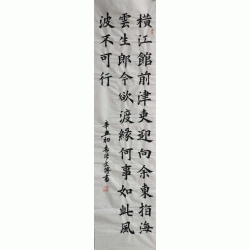 橫江館前津吏迎向余東指海
雲生郎今欲渡緣何事如此風
波不可行
辛丑初
書